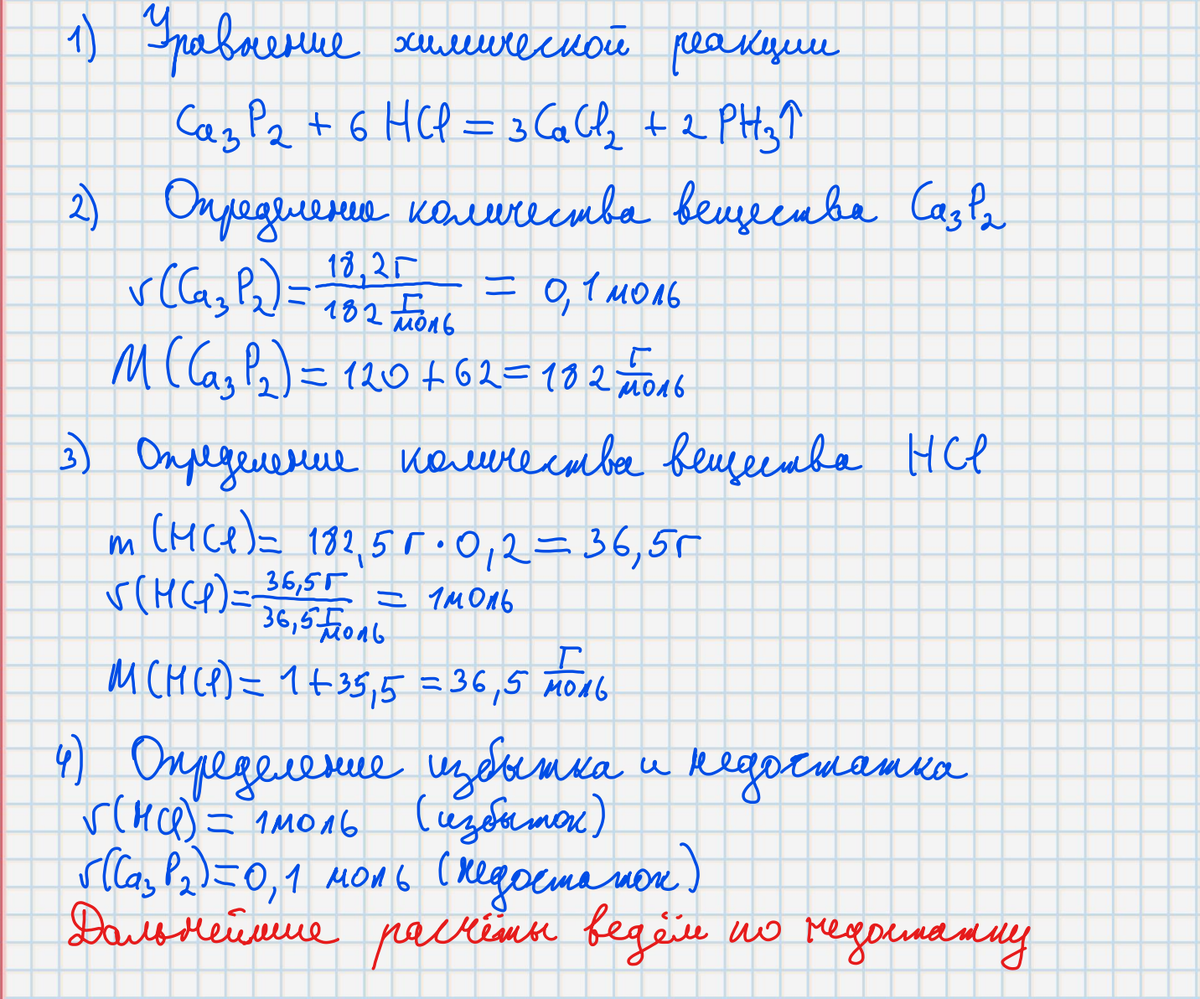 1) Уравнение химической реакции
Ca₃P₂ + 6 HCl = 3CaCl₂ + 2 PH₃↑
2) Определение количества вещества Ca₃P₂
ν(Ca₃P₂) = 18,2г / 182 г/моль = 0,1 моль
M(Ca₃P₂) = 120 + 62 = 182 г/моль
3) Определение количества вещества HCl
m(HCl) = 182,5г · 0,2 = 36,5г
ν(HCl) = 36,5г / 36,5 г/моль = 1моль
M(HCl) = 1 + 35,5 = 36,5 г/моль
4) Определение избытка и недостатка
ν(HCl) = 1моль (избыток)
ν(Ca₃P₂) = 0,1 моль (недостаток)
Дальнейшие расчёты ведём по недостатку